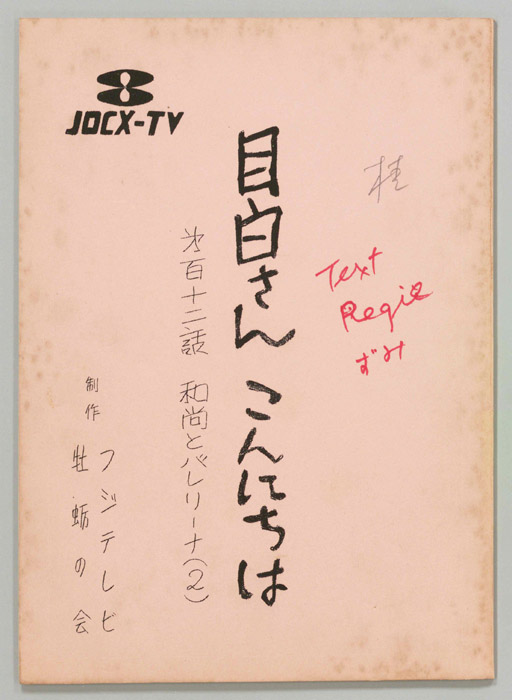 JOCX-TV
桂
Text
Regie
ずみ
目白さん こんにちは
才百十二話 和尚とバレリーナ(2)
制作 フジテレビ
牡蛎の会